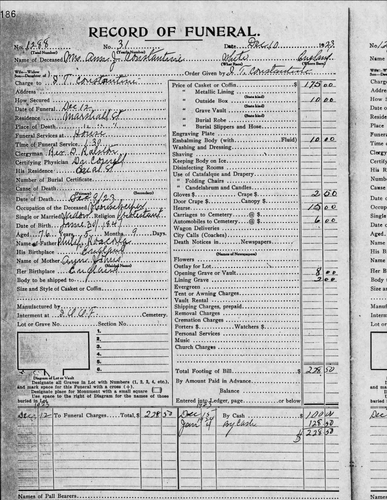 186
RECORD OF FUNERAL.
No. 1288 No. 31 Date Dec 10 1923
Name of Deceased Mrs. Amos J. Constantine White England
Charge to J. T. Constantine Order Given by J. T. Constantine
Address
How Secured
Date of Funeral Dec 12
Residence Marshall St
Place of Death
Funeral Services at House
Time of Funeral Service 1:30
Clergyman Rev. D. Ralston
Certifying Physician Dr.
His Residence Canal St
Number of Burial Certificate
Cause of Death
Date of Death 9/23
Occupation of the Deceased Housekeeper
Single or Married Widow Religion Protestant
Date of Birth June 30, 1847
Aged 76 Years 5 Months 9 Days
Name of Father Philip Roscorla
His Birthplace England
Name of Mother Ann Jones
Her Birthplace England
Body to be shipped
Size and Style of Casket or Coffin
Manufactured by
Interment at I.O.O.F. Cemetery.
Lot or Grave No. Section No.
1.
2.
3.
4.
5.
6.
Diagram of Lot or Vault
Designate all Graves in Lot with Numbers (1, 2, 3, 4, etc.), and mark space for this Funeral with a cross (+).
Designate place for Monument with a small square
Use space to the right of Diagram for the names of those buried in Lot.
Price of Casket or Coffin 175 00
" Metallic Lining
" Outside Box 10 00
" Grave Vault
" Burial Robe
" Burial Slippers and Hose
Engraving Plate
Embalming Body (with Fluid) 10 00
Washing and Dressing
Shaving
Keeping Body on Ice
Disinfecting Rooms
Use of Catafalque and Drapery
" Folding Chairs
" Candelabrum and Candles
Gloves $ Crape $ 2 50
Door Crape $ Canopy $
Hearse 15 00
Carriages to Cemetery @ $
Automobiles to Cemetery @ $ 6 00
Wagon Deliveries
City Calls (Coaches)
Death Notices in Newspapers
(Names of Newspapers)
Flowers
Outlay for Lot
Opening Grave or Vault 8 00
Lining Grave 2 00
Evergreen
Tent or Awning Charges
Vault Rental
Shipping Charges, prepaid
Removal Charges
Cremation Charges
Porters $ Watchers $
Personal Services
Music
Church Charges
Total Footing of Bill 228 50
By Amount Paid in Advance
Balance
Entered into Ledger, page or below.
1923
Dec 12 To Funeral Charges Total, $ 228 50
1923
Dec 15 By Cash 100 00
Jan 4 By Cash 128 50
$ 228 50
Names of Pall Bearers